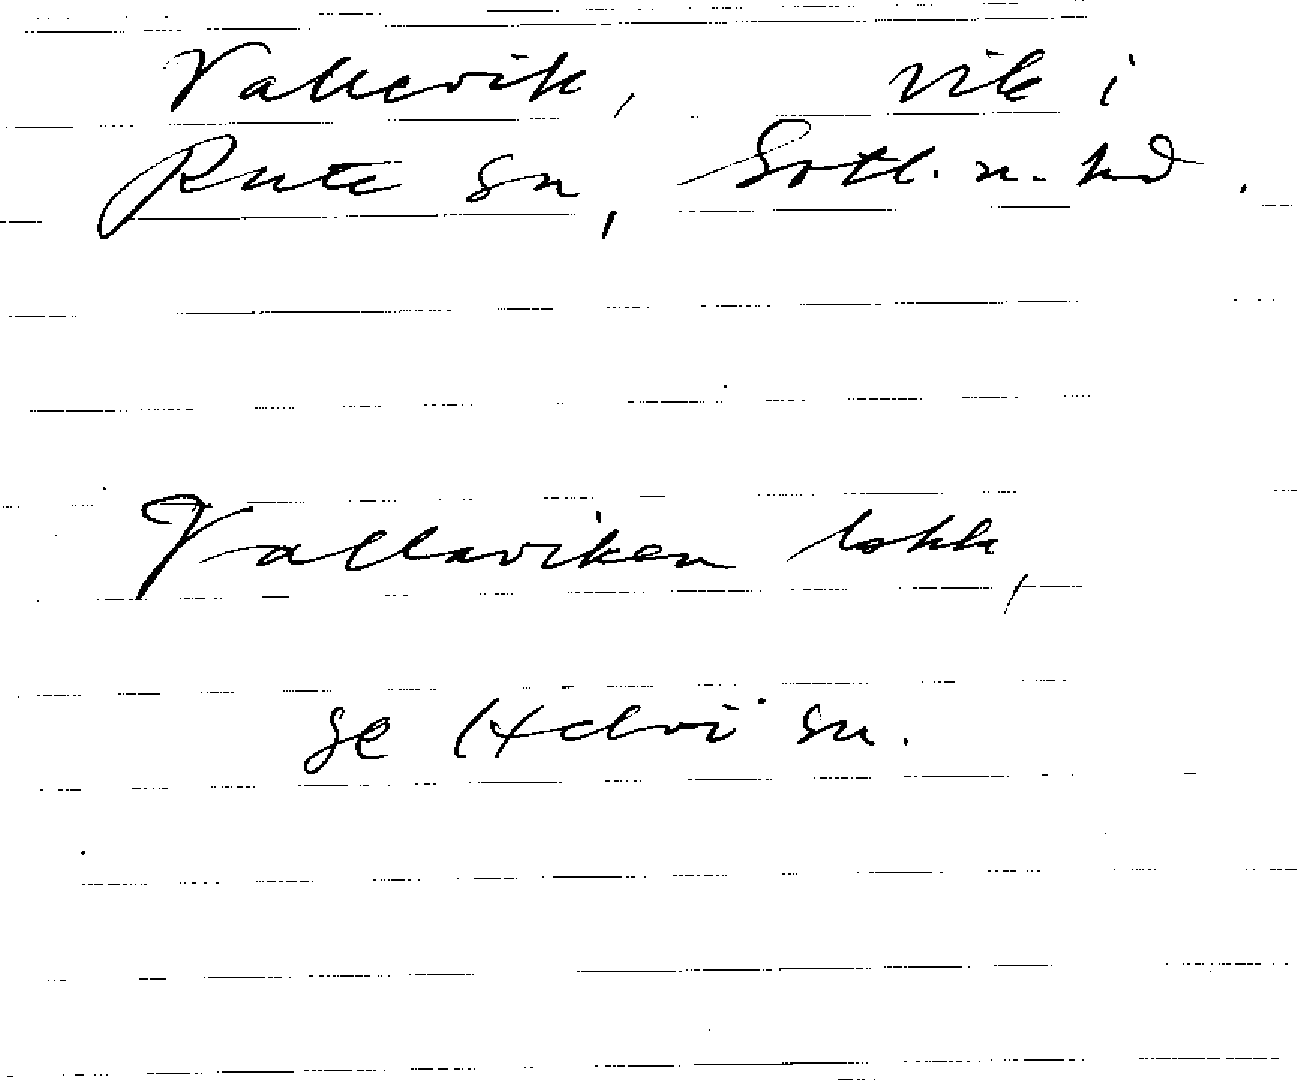 Vallevik, vik i
Rute sn, Gotl. n. hd.
Vallaviken lokk,
se Hellvi sn.